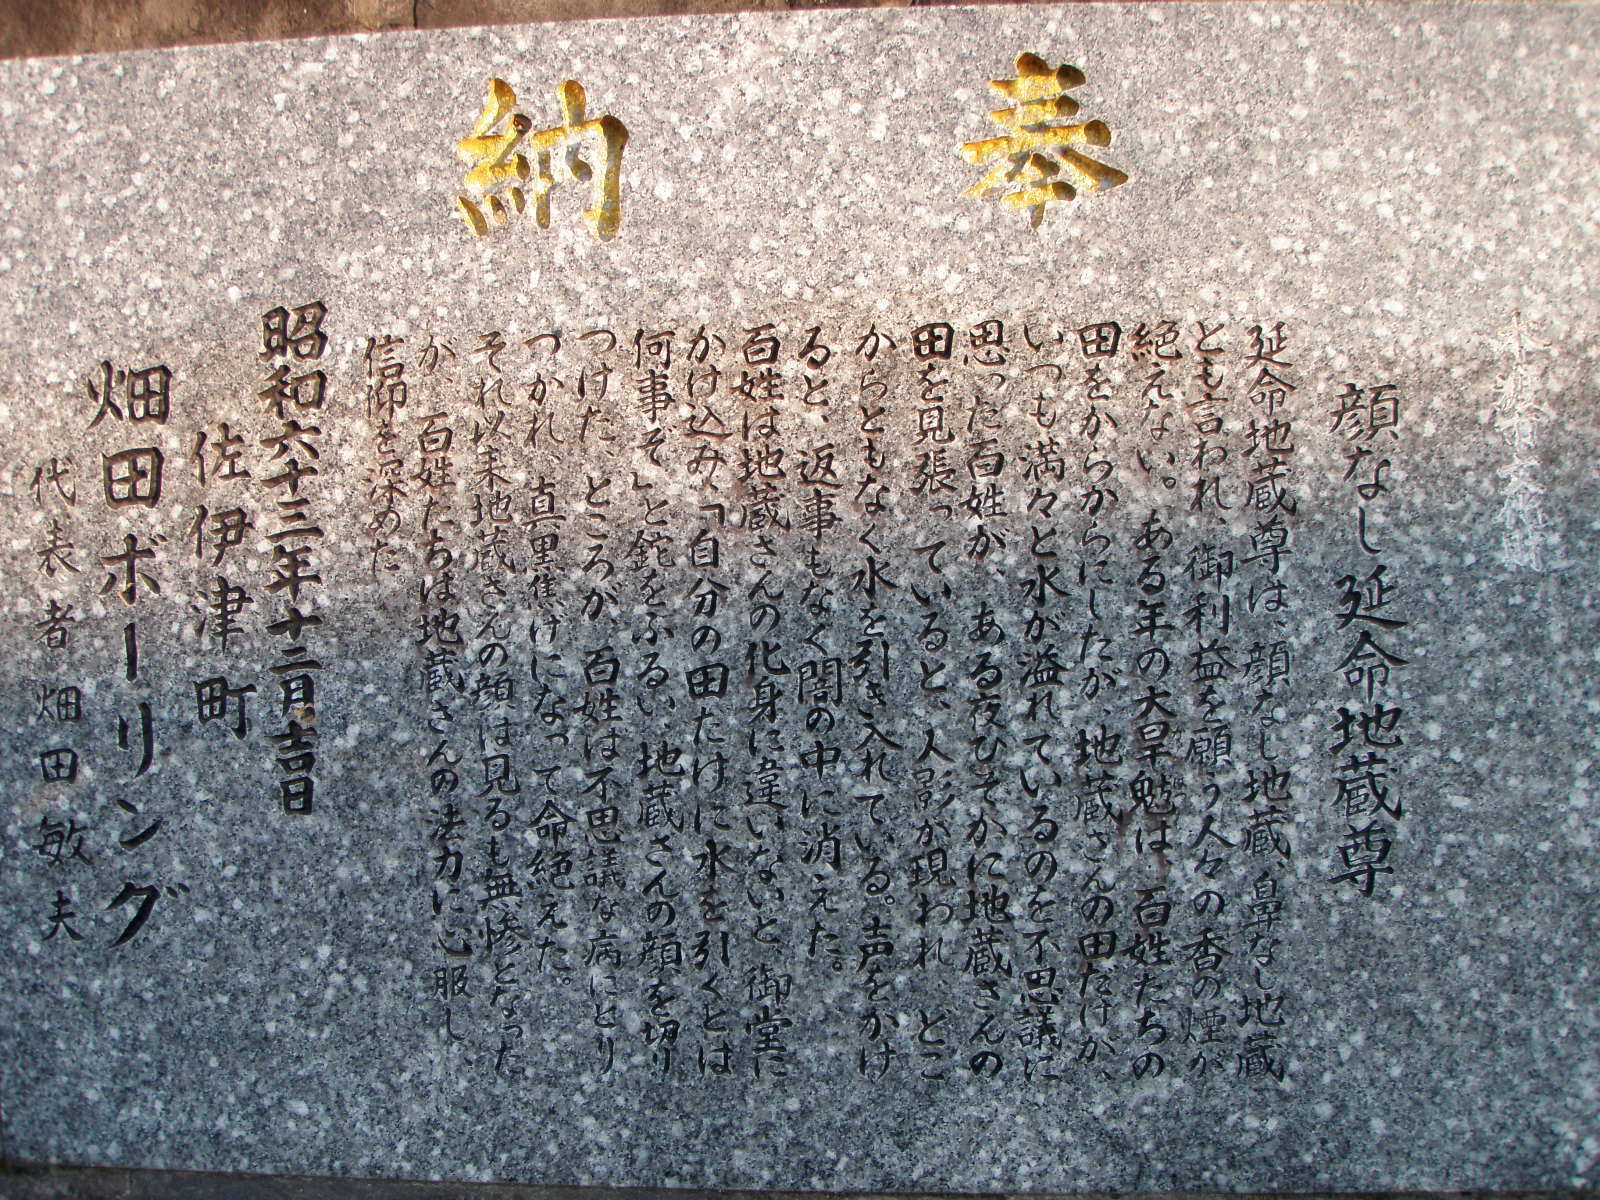 奉納
顔なし延命地蔵尊
延命地蔵尊は、顔なし地蔵、鼻なし地蔵
とも言われ、御利益を願う人々の香の煙が
絶えない。ある年の大旱魃は、百姓たちの
田をからからにしたが、地蔵さんの田だけが、
いつも満々と水が溢れているのを不思議に
思った百姓が、ある夜ひそかに地蔵さんの
田を見張っていると、人影が現われ、どこ
からともなく水を引き入れている。声をかけ
ると、返事もなく闇の中に消えた。
百姓は地蔵さんの化身に違いないと、御堂に
かけ込み、「自分の田だけに水を引くとは
何事ぞ」と鉈をふるい、地蔵さんの顔を切り
つけた、ところが、百姓は不思議な病にとり
つかれ、真黒焦げになって命絶えた。
それ以来地蔵さんの顔は見るも無惨となった
が、百姓たちは地蔵さんの法力に心服し、
信仰を深めた
昭和六十三年十二月吉日
佐伊津町
畑田ボーリング
代表者 畑田敏夫